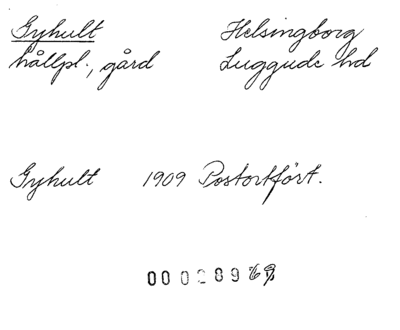 Gyhult Helsingborg
hållpl., gård Luggude hd
Gyhult 1909 Postortfört.